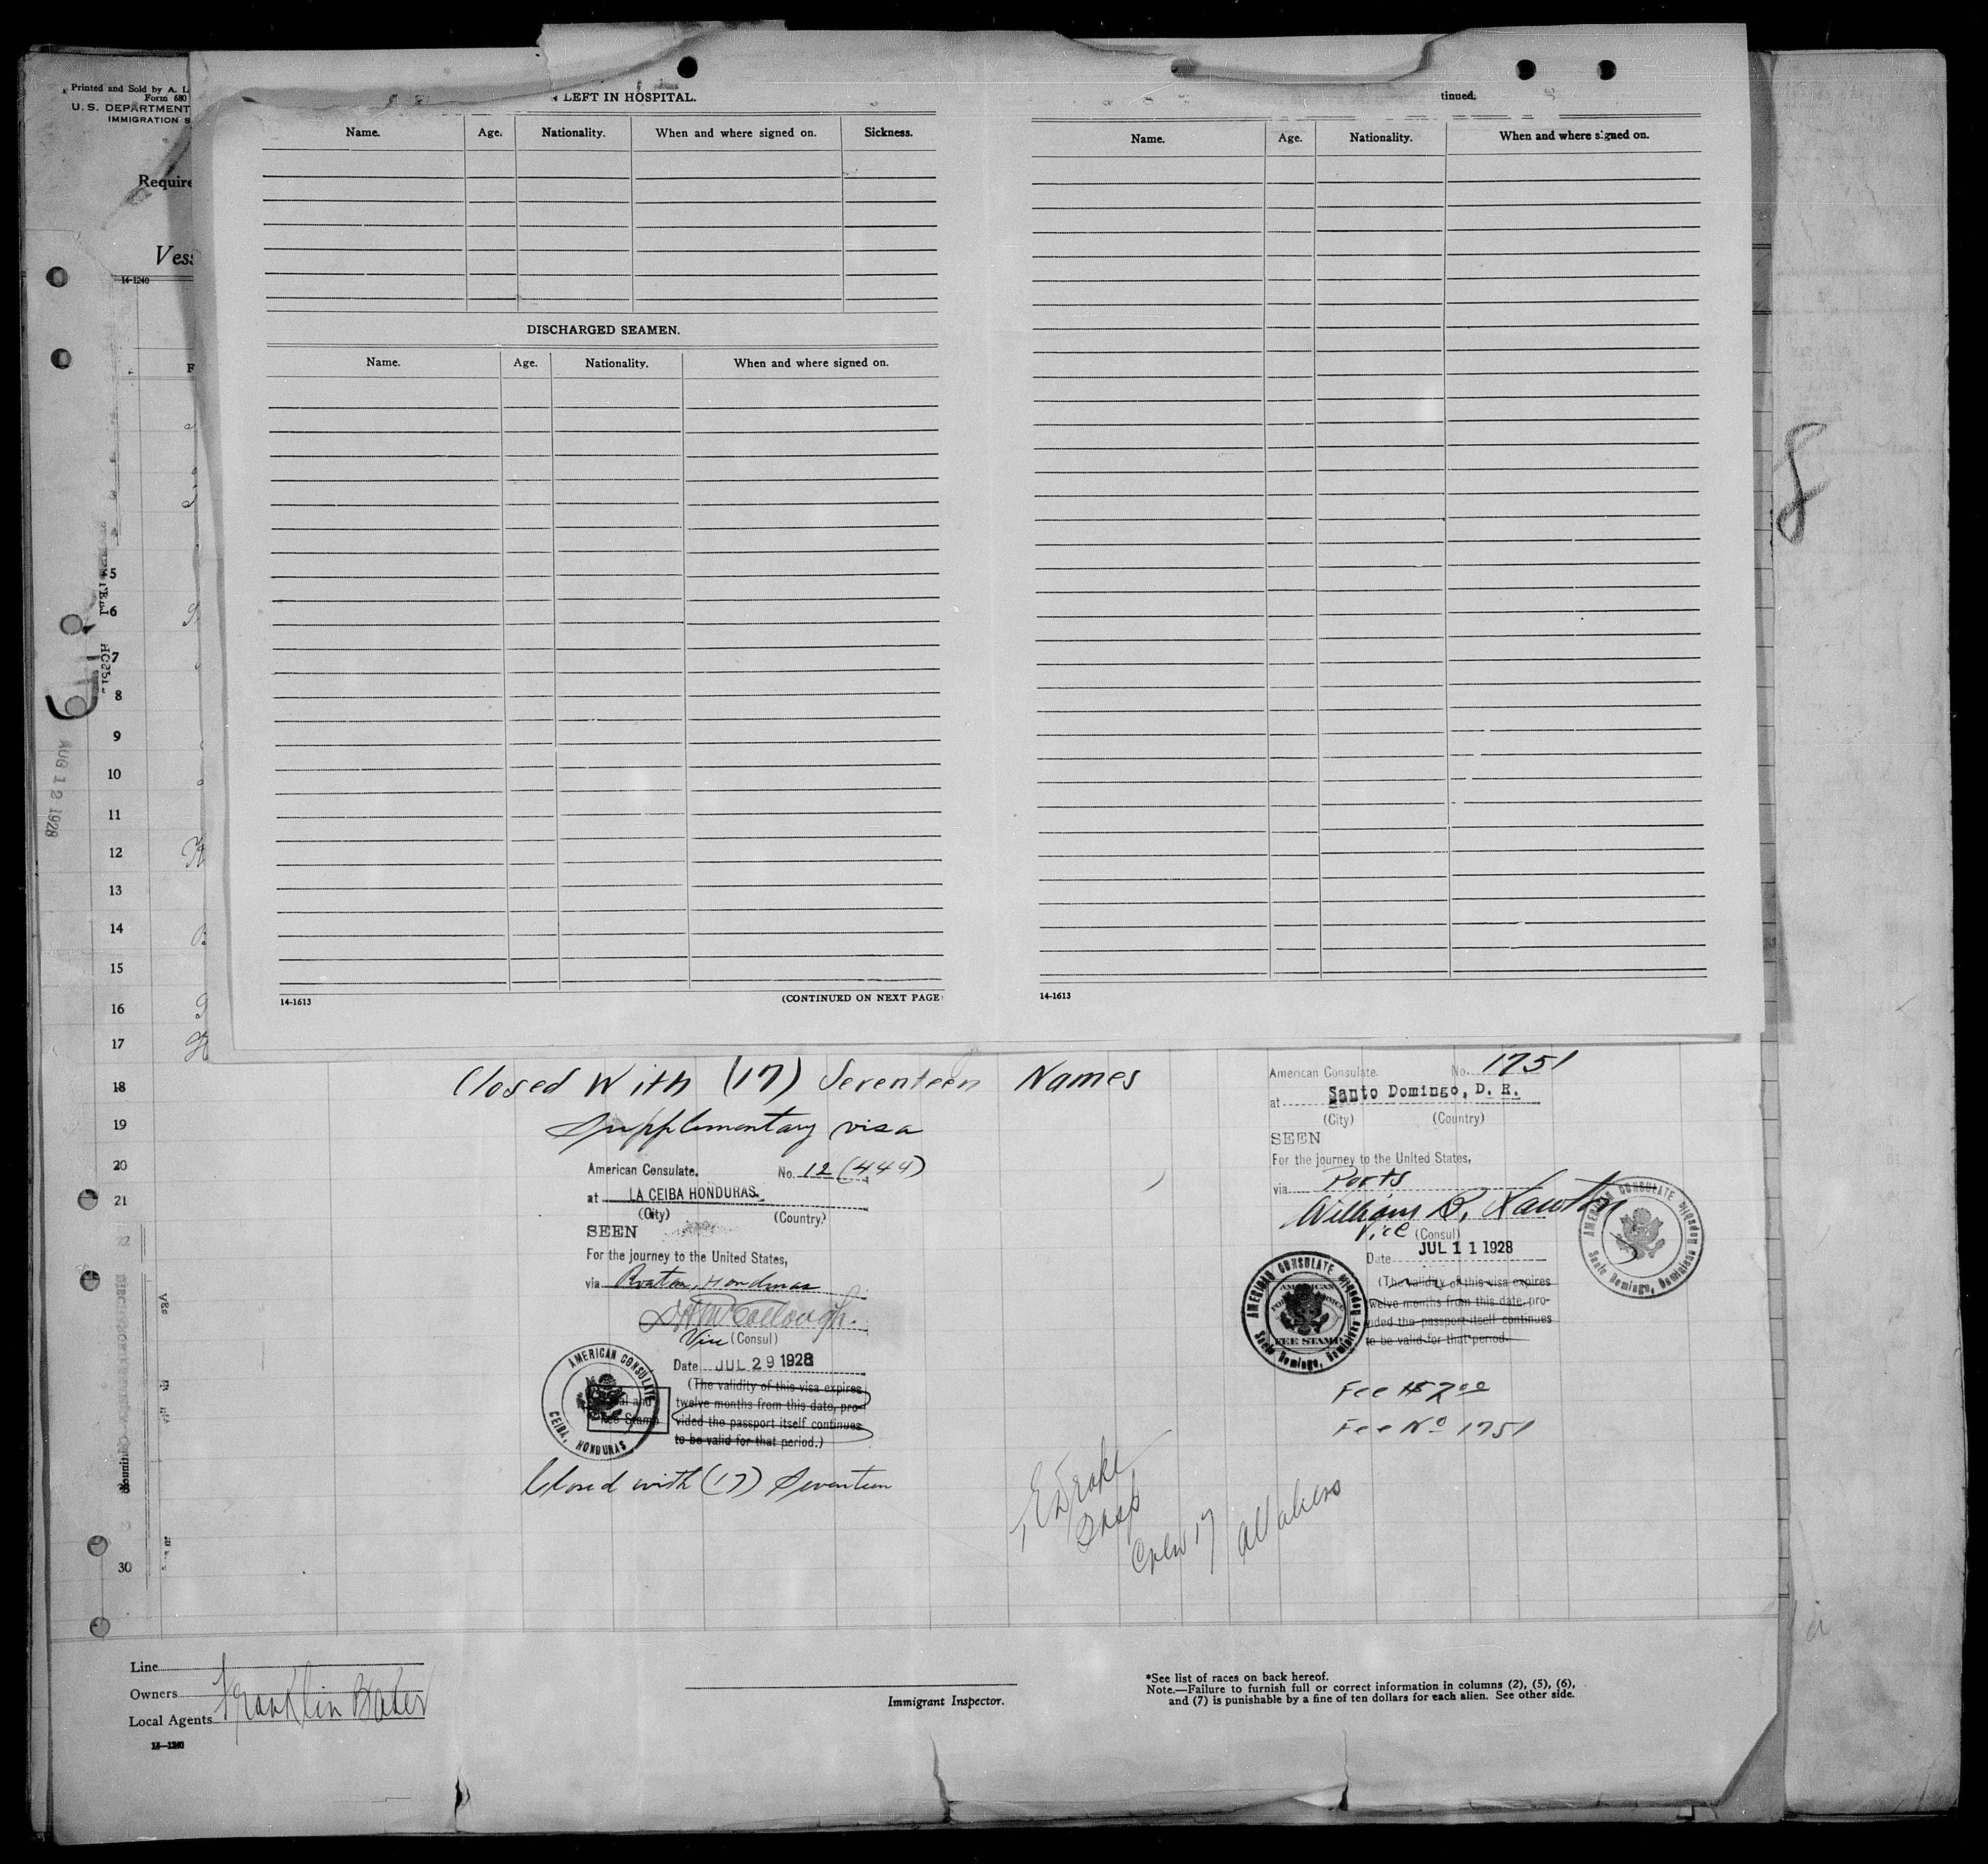 Printed and Sold by A. L
Form 680
U. S. DEPARTMENT
IMMIGRATION S
Require
Vess
14-1240
LEFT IN HOSPITAL.
Name. Age. Nationality. When and where signed on. Sickness.
DISCHARGED SEAMEN.
Name. Age. Nationality. When and where signed on.
14-1613 (CONTINUED ON NEXT PAGE)
tinued.
Name. Age. Nationality. When and where signed on.
14-1613
8
5
6
7
8
9
10
11
12
13
14
15
16
17
18
19
20
21
30
AUG 12 1928
Closed With (17) Seventeen Names
Supplementary visa
American Consulate. No. 12 (444)
at LA CEIBA HONDURAS.
(City) (Country)
SEEN
For the journey to the United States,
via Roatan, Honduras
Vice (Consul)
Date JUL 29 1928
(The validity of this visa expires
twelve months from this date, pro-
vided the passport itself continues
to be valid for that period.)
AMERICAN CONSULATE
CEIBA, HONDURAS
Closed with (17) Seventeen
American Consulate. No. 1751
at Santo Domingo, D. R.
(City) (Country)
SEEN
For the journey to the United States,
via Ports
William B. Lawton
Vice (Consul)
Date JUL 11 1928
(The validity of this visa expires
twelve months from this date, pro-
vided the passport itself continues
to be valid for that period.
AMERICAN CONSULATE
Santo Domingo, Dominican Republic
FEE STAMP
AMERICAN CONSULATE
Santo Domingo, Dominican Republic
Fee $2.00
Fee No 1751
Drake
Insp
Crew 17 all aliens
Line
Owners Franklin Baker
Local Agents
14-1240
Immigrant Inspector.
*See list of races on back hereof.
Note.—Failure to furnish full or correct information in columns (2), (5), (6),
and (7) is punishable by a fine of ten dollars for each alien. See other side.